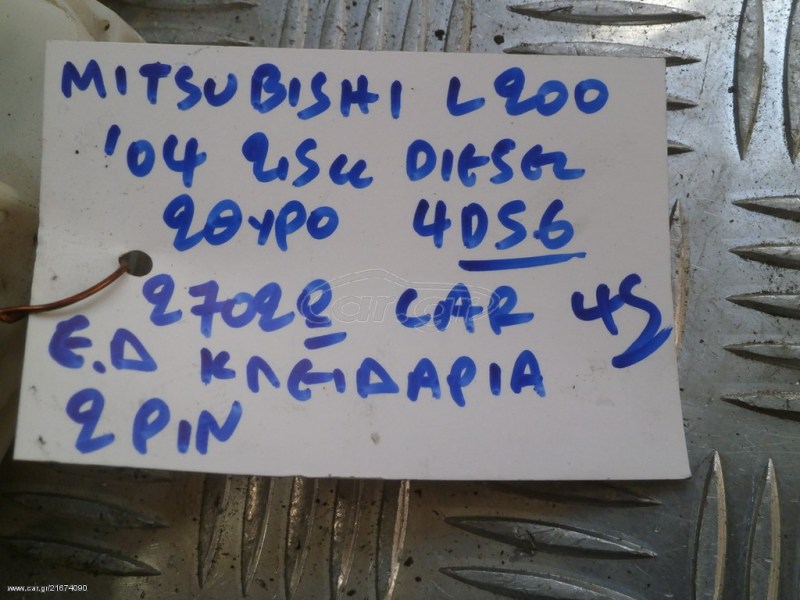 MITSUBISHI L200
'04 2,5cc DIESEL
2ΘΥΡΟ 4D56
27022 CAR 42
Ε.Δ ΚΛΕΙΔΑΡΙΑ
2 PIN
www.car.gr/21674090